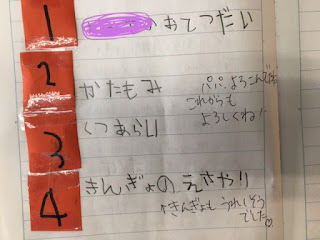 1 おてつだい
2 かたもみ
パパ よろこんでた
これからも
よろしくね!
3 くつあらい
4 きんぎょのえさやり
きんぎょも うれしそう
でした